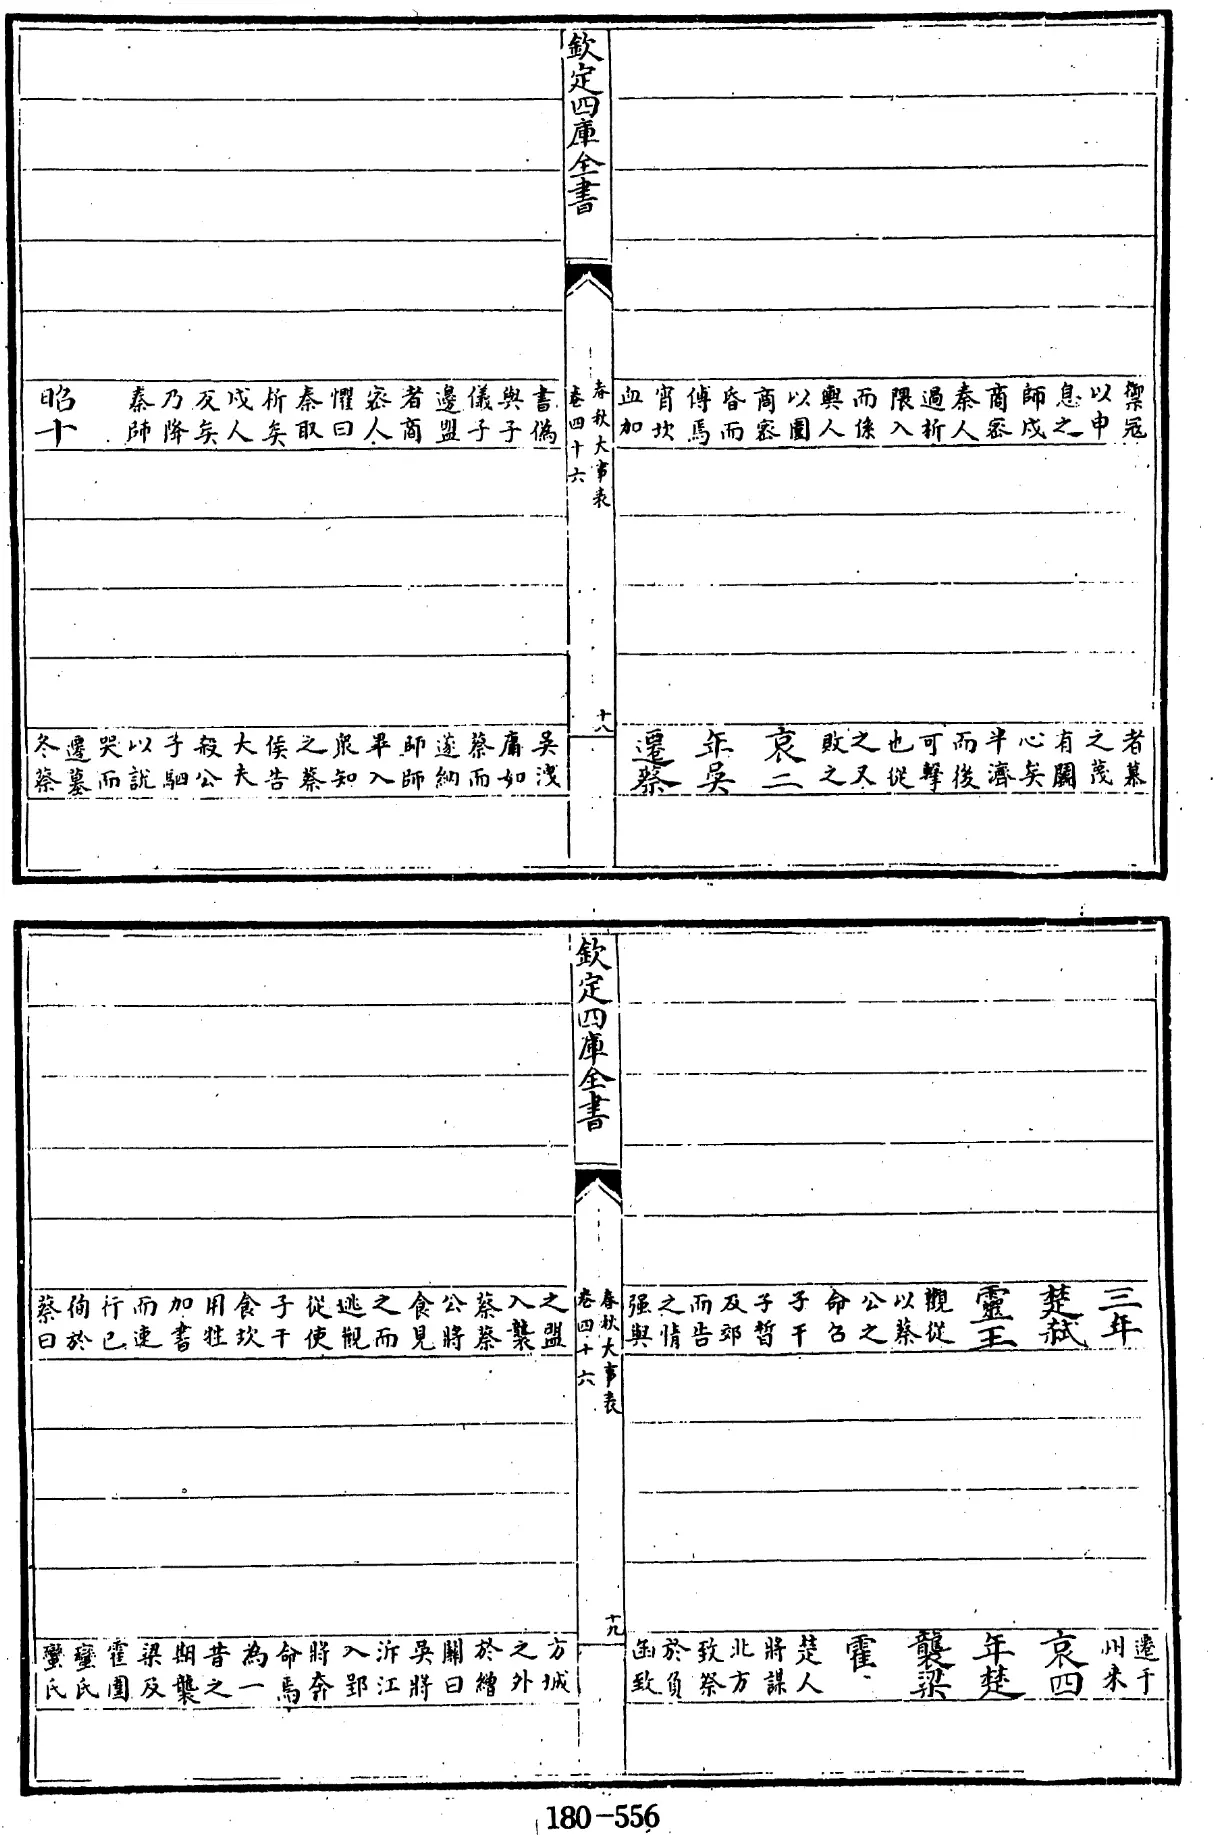 禦冦
以申
息之
師戍
商宻
秦人
過析
隈入
而係
輿人
以圍
商宻
昏而
傅馬
宵坎
血加
者慕
之茂
有鬬
心矣
半濟
而後
可擊
也從
之又
敗之
哀二
年吳
遷蔡
欽定四庫全書
春秋大事表
卷四十六
十八
書偽
與子
儀子
邊盟
者商
宻人
懼曰
秦取
析矣
戍人
反矣
乃降
秦師
昭十
吳洩
庸如
蔡而
遂納
師師
畢入
衆知
之蔡
侯告
大夫
殺公
子駟
以說
哭而
遷墓
冬蔡
三年
楚弑
靈王
觀從
以蔡
公之
命召
子干
子晳
及郊
而告
之情
强與
遷于
州来
哀四
年楚
襲梁
霍
楚人
將謀
北方
致祭
於負
函致
欽定四庫全書
春秋大事表
卷四十六
十九
之盟
入襲
蔡蔡
公將
食見
之而
逃觀
從使
子干
食坎
用牲
加書
而速
行已
徇於
蔡曰
方城
之外
於繒
關曰
吳將
泝江
入郢
將奔
命焉
為一
昔之
期襲
梁及
霍圍
蠻氏
蠻氏
180-556